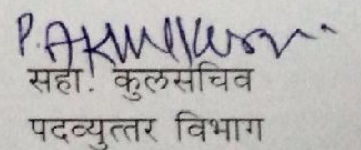 सहा. कुलसचिव
पदव्युत्तर विभाग